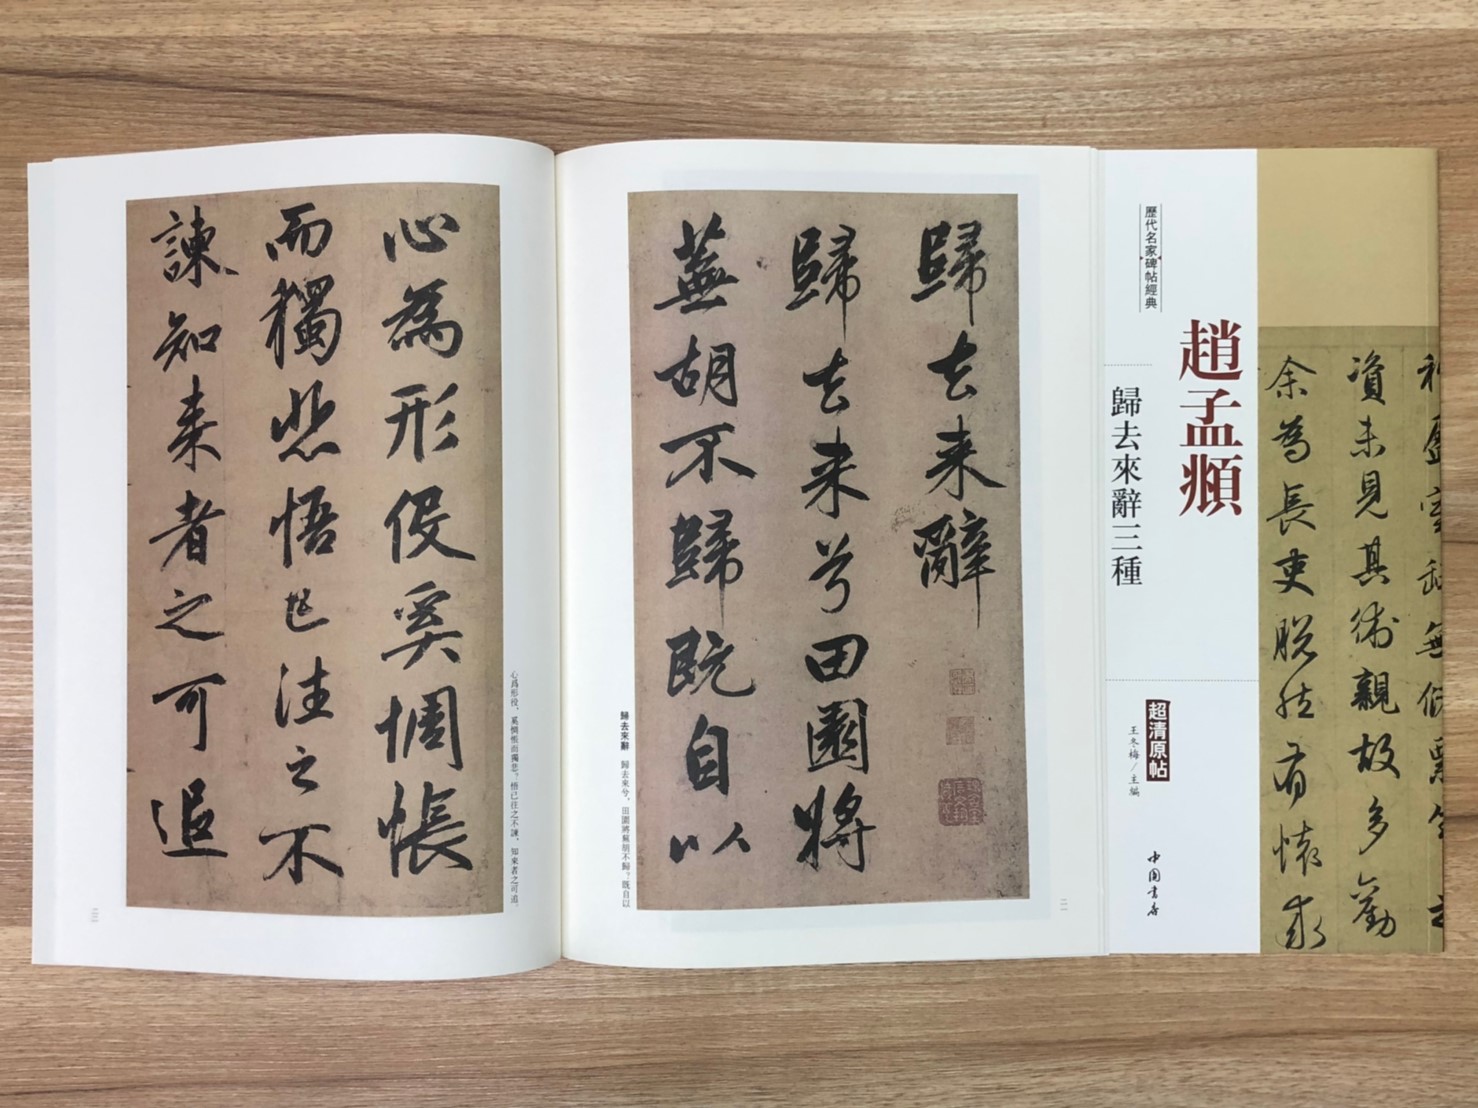 歸去来辭
歸去来兮田園將
蕪胡不歸既自以
歸去來辭 歸去來兮，田園將蕪胡不歸？既自以
二
心為形役奚惆悵
而獨悲悟已往之不
諫知来者之可追
心爲形役，奚惆悵而獨悲？悟已往之不諫，知來者之可追。
三
歷代名家碑帖經典
趙孟頫
歸去來辭三種
超清原帖
王冬梅/主編
中国書店
資未見其術親故多勸
余為長吏脱然有懷求